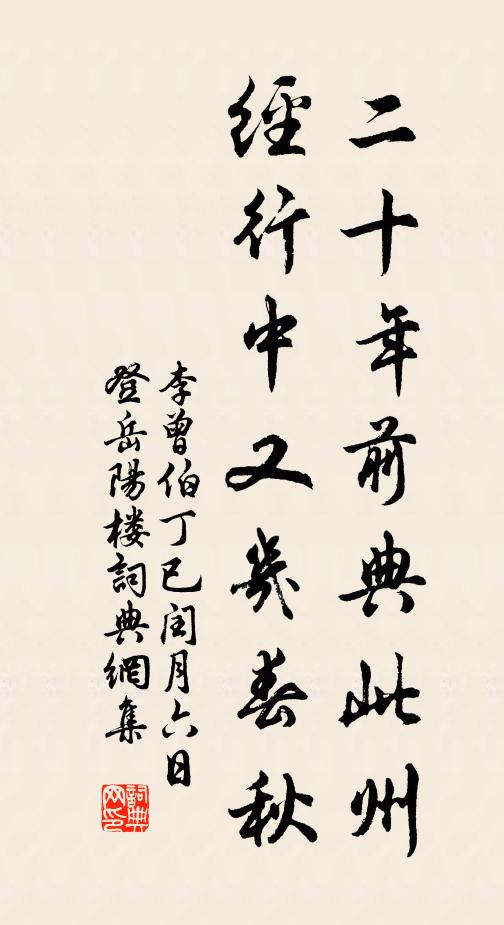 二十年前典此州
經行中又幾春秋
李曾伯丁巳閏月六日
登岳陽楼詞典網集
詞典
网印